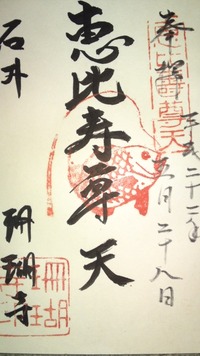 奉拝
平成二十二年
六月二十八日
恵比寿尊天
恵比寿尊天
石井
珊瑚寺
珊瑚